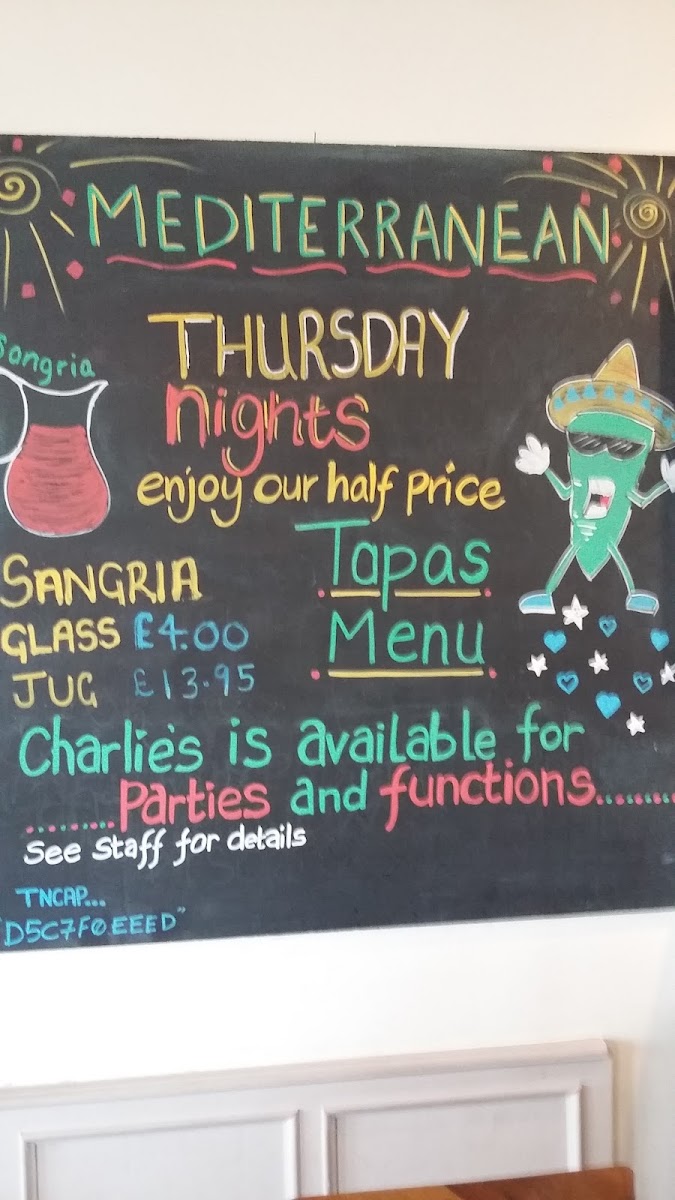 MEDITERRANEAN
THURSDAY
nights
enjoy our half price
Tapas
Menu
Sangria
SANGRIA
GLASS £4.00
JUG £13.95
Charlie's is available for
.........Parties and functions.........
See staff for details
TNCAP...
"D5C7F0EEED"